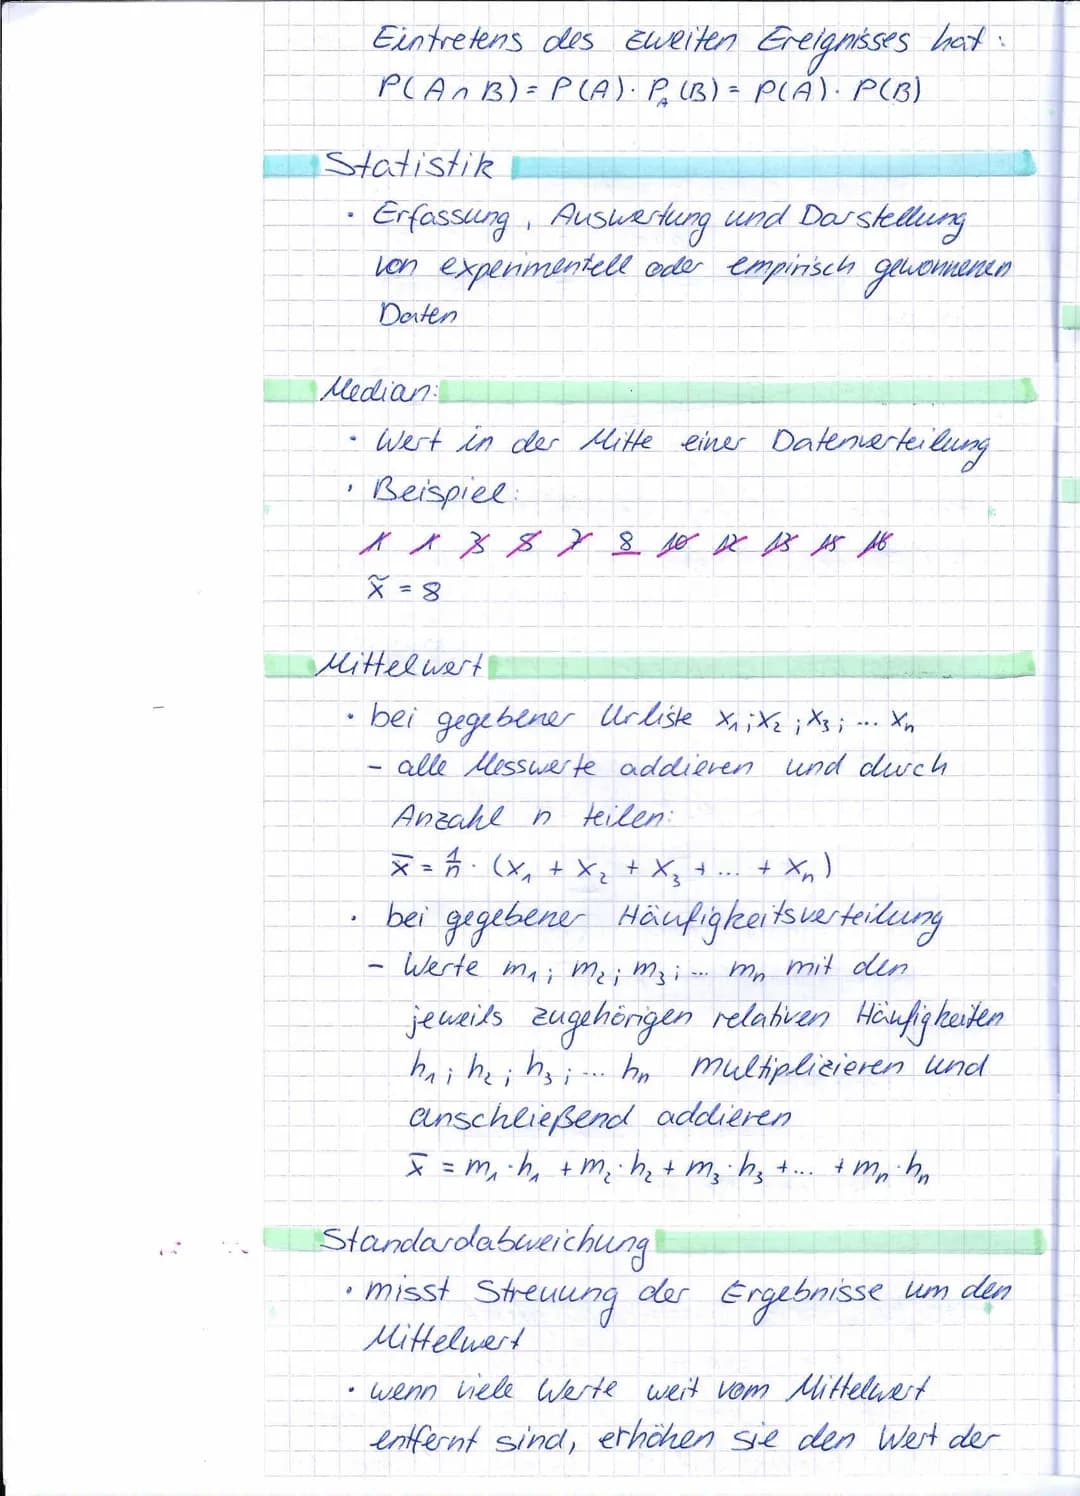 Eintretens des zweiten Ereignisses hat:
P(A∩B) = P(A) · P_A(B) = P(A) · P(B)
Statistik
· Erfassung, Auswertung und Darstellung
von experimentell oder empirisch gewonnenen
Daten
Median:
· Wert in der Mitte einer Datenverteilung
· Beispiel:
1 1 3 5 7 8 10 12 13 15 16
x̃ = 8
Mittelwert
· bei gegebener Urliste x₁; x₂; x₃; ... xₙ
- alle Messwerte addieren und durch
Anzahl n teilen:
x̄ = 1/n · (x₁ + x₂ + x₃ + ... + xₙ)
· bei gegebener Häufigkeitsverteilung
- Werte m₁; m₂; m₃; ... mₙ mit den
jeweils zugehörigen relativen Häufigkeiten
h₁; h₂; h₃; ... hₙ multiplizieren und
anschließend addieren
x̄ = m₁·h₁ + m₂·h₂ + m₃·h₃ + ... + mₙ·hₙ
Standardabweichung
· misst Streuung der Ergebnisse um den
Mittelwert
· wenn viele Werte weit vom Mittelwert
entfernt sind, erhöhen sie den Wert der